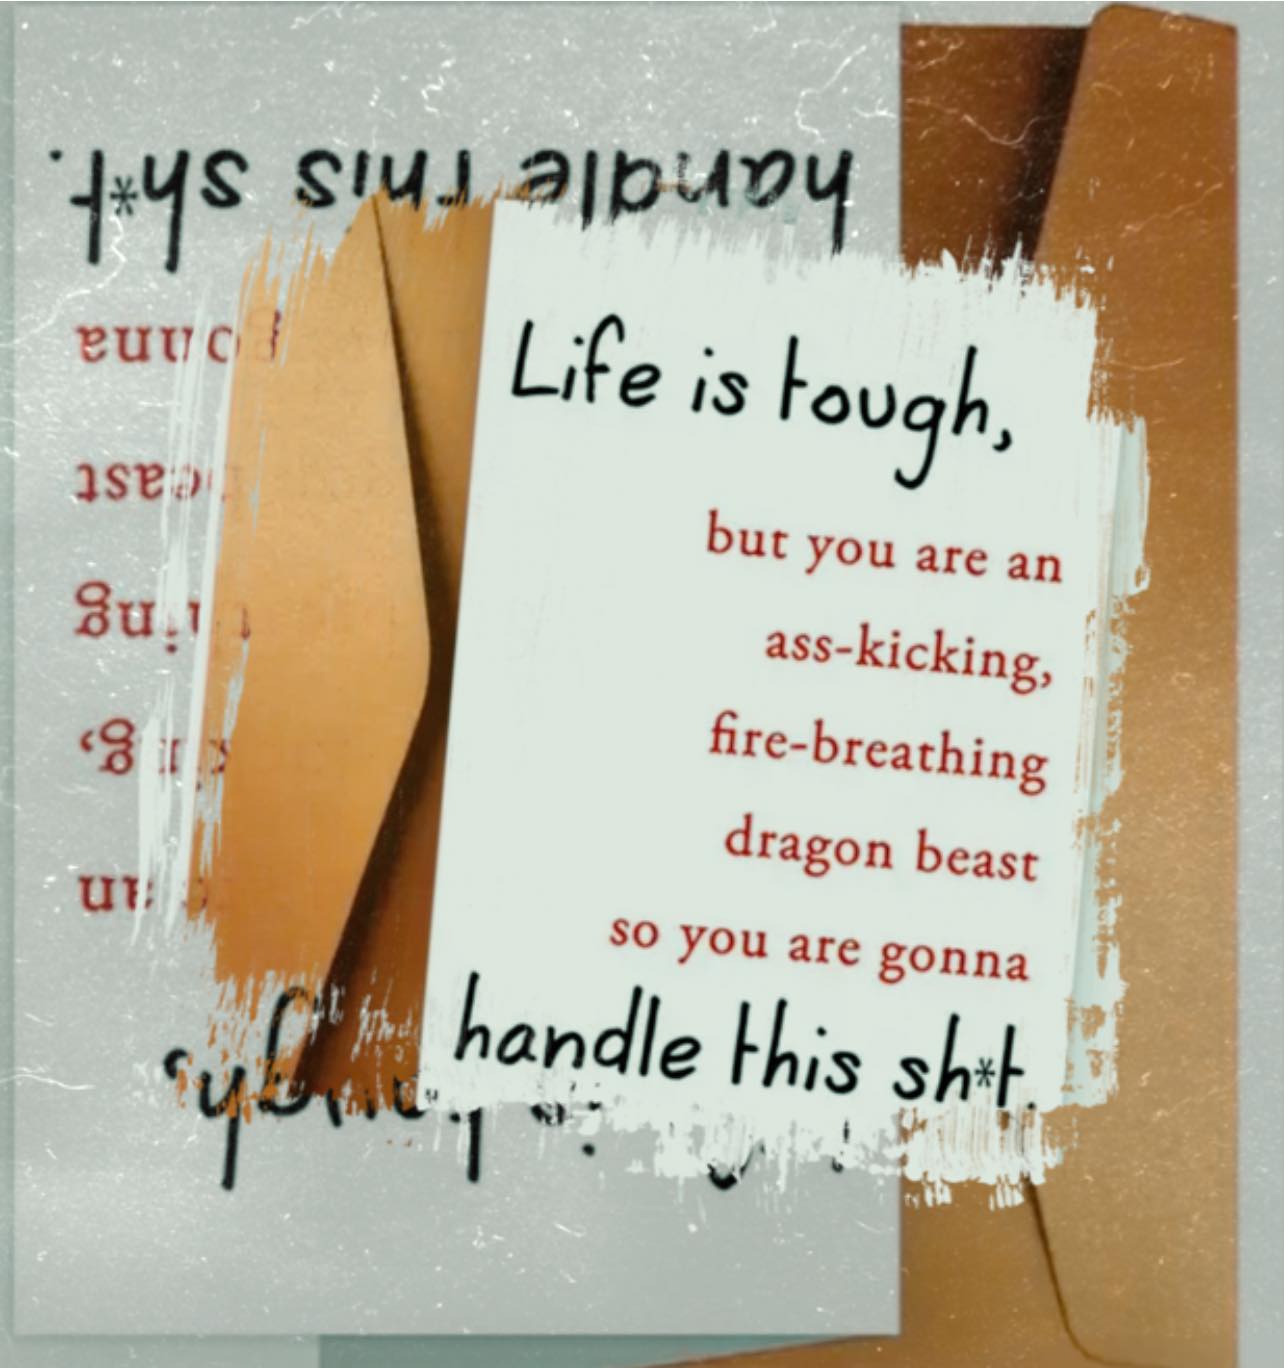 Life is tough,
but you are an
ass-kicking,
fire-breathing
dragon beast
so you are gonna
handle this sh*t.
handle this sh*t.